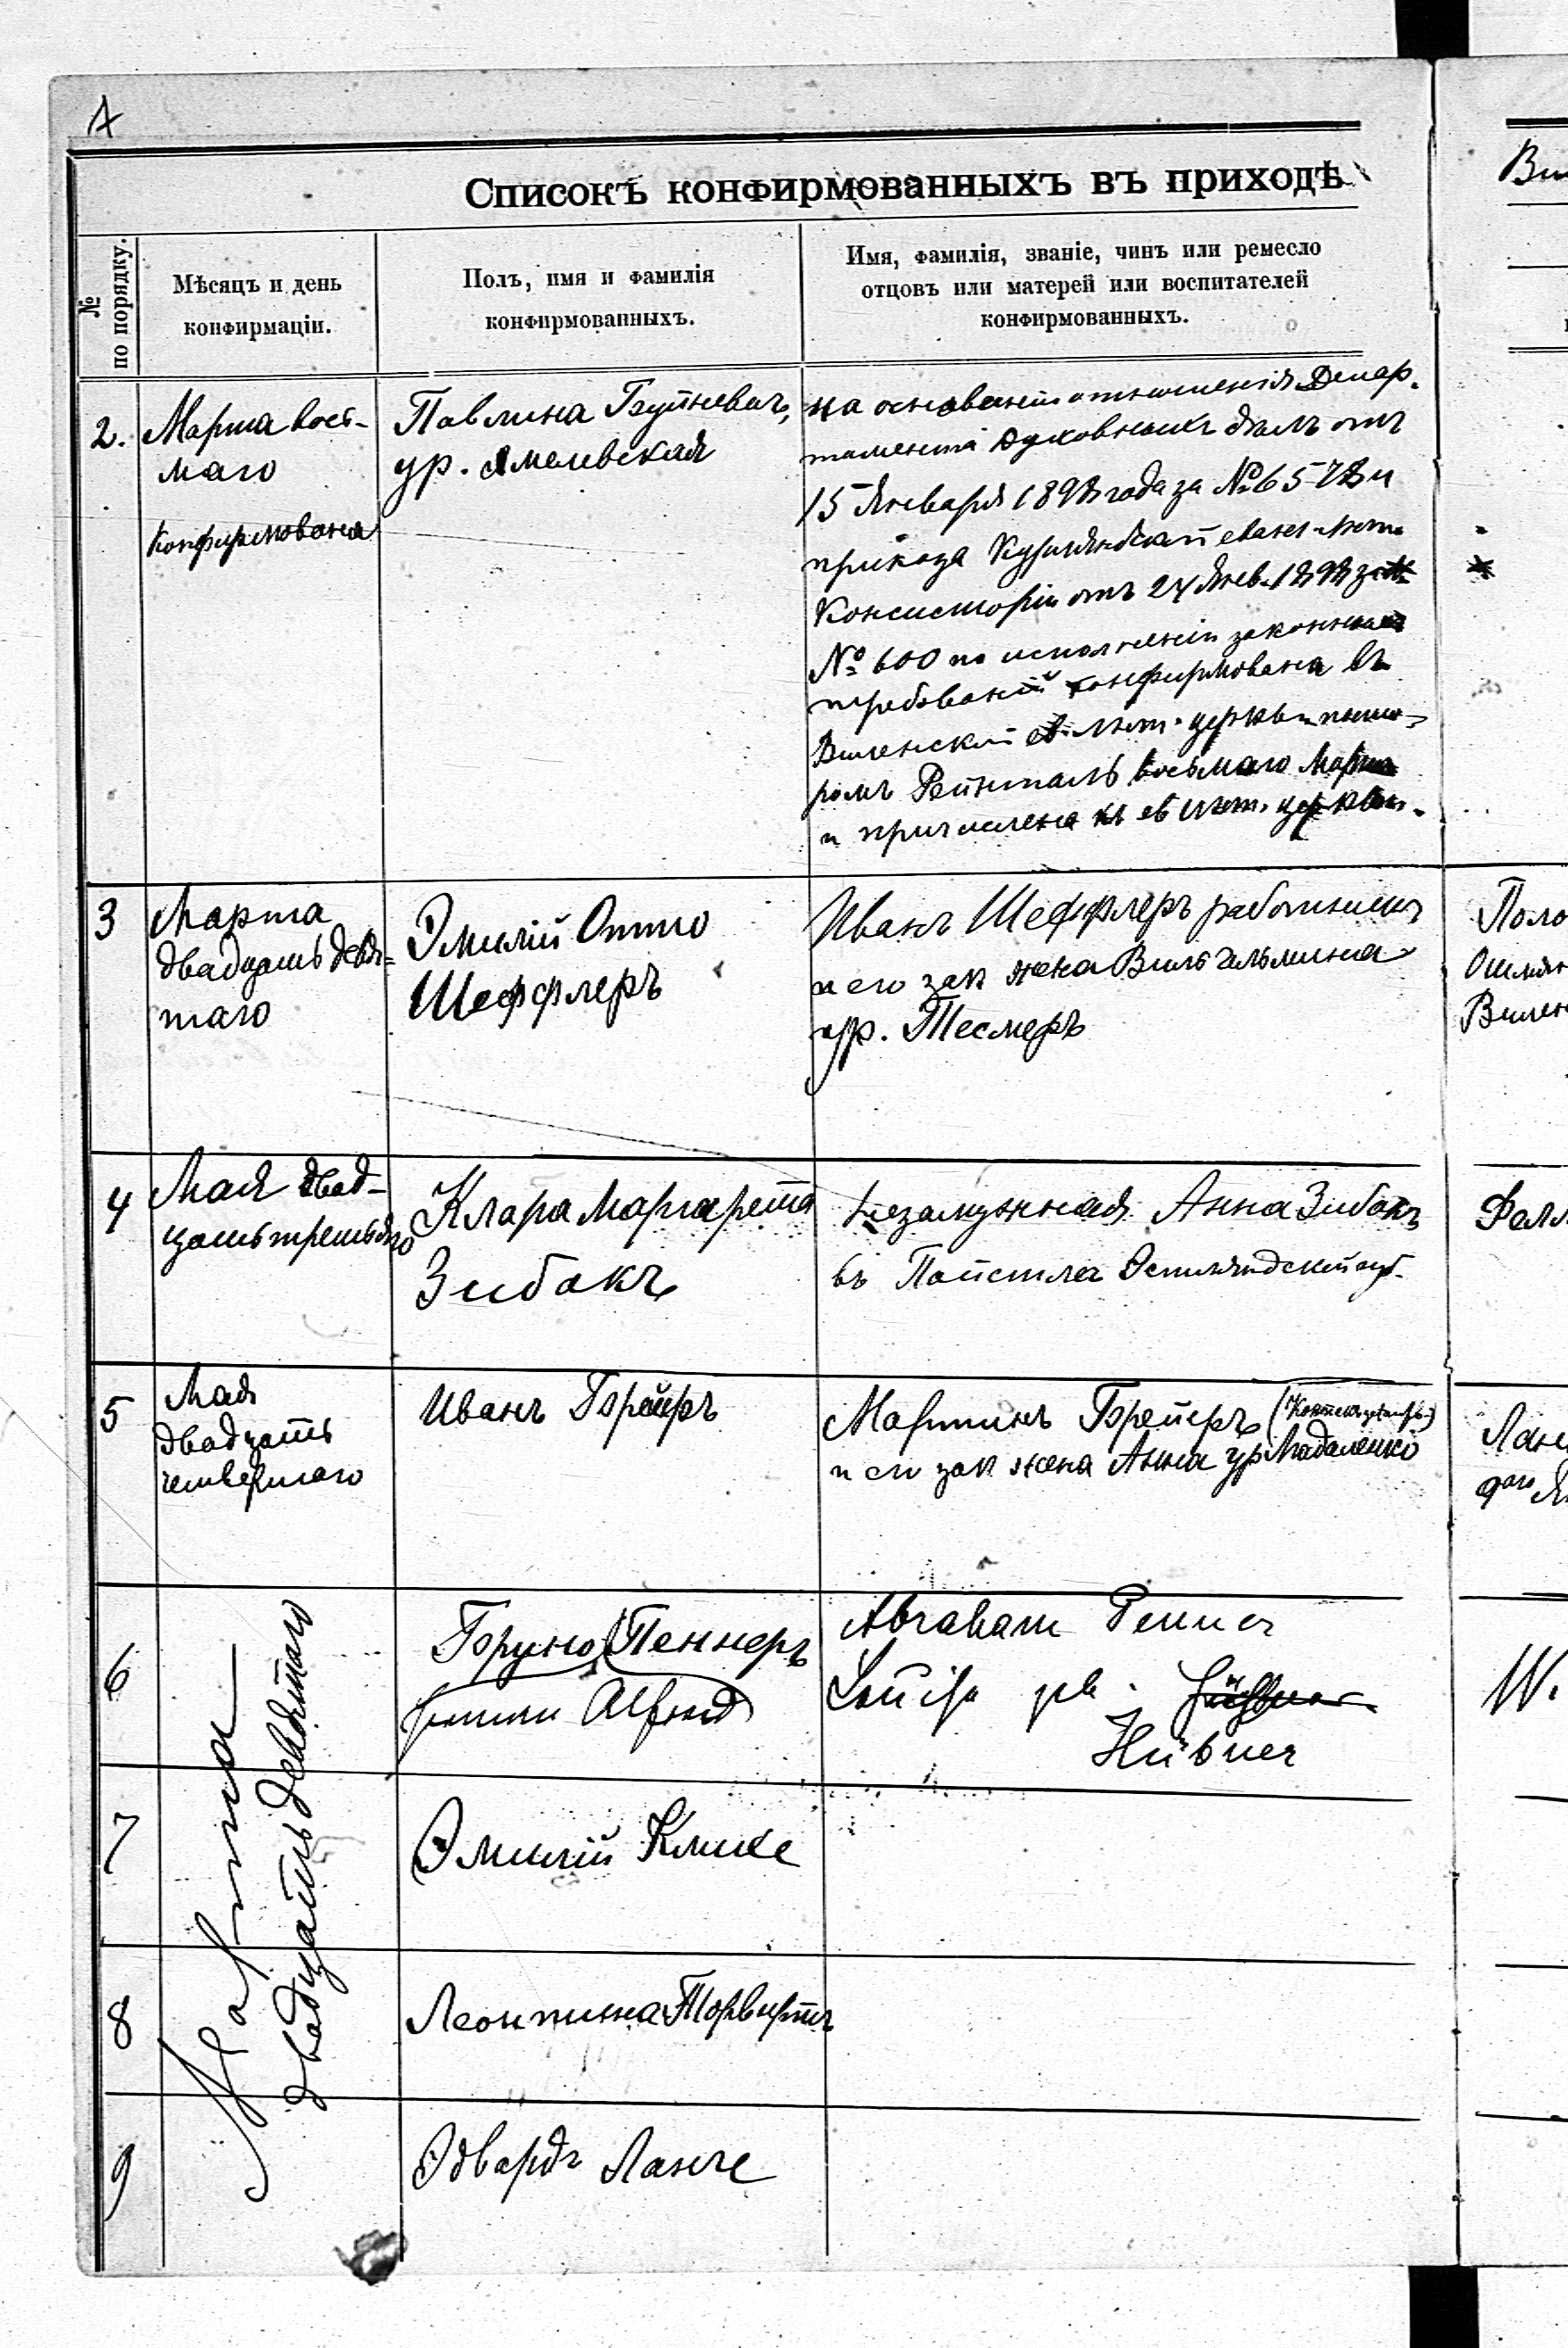 А
Списокъ конфирмованныхъ въ приходѣ
№ по порядку.
Мѣсяцъ и день
конфирмаціи.
Полъ, имя и фамилія
конфирмованныхъ.
Имя, фамилія, званіе, чинъ или ремесло
отцовъ или матерей или воспитателей
конфирмованныхъ.
2.
Марта вось-
маго
конфирмована
Павлина
ур.
на основаніи отношенія Депар-
тамента Духовныхъ дѣлъ отъ
15 Января 189 года за №
приказа Курляндской еванг-лют.
Консисторіи отъ 24 Янв.
№ 600 по исполненіи законныхъ
требованій конфирмована въ
Виленской ев. лют. церкви пасто-
ромъ восьмаго Марта
и причислена къ ев лют. церкви.
3
Марта
двадцать девя-
таго
Эмилій Отто
Шеффлеръ
Иванъ Шеффлеръ работникъ
и его зак жена Вильгельмина
ур. Тесмеръ
4
Мая двад-
цать третьяго
Клара Маргарета
Зибакъ
Незамужняя Анна Зибакъ
въ Эстляндской губ.
5
Мая
двадцать
четвертаго
Иванъ Брейеръ
Мартинъ Брейеръ
и его зак жена Анна ур
6
Марта
двадцать девятаго
Бруно Пеннеръ
Alfred
Abraham Penner
Louise geb.
Hübner
7
Эмилій Клике
8
Леонтина
9
Эдвардъ Ланге
Ви
Поло
Ошмян
Вилен
Фелл
W.